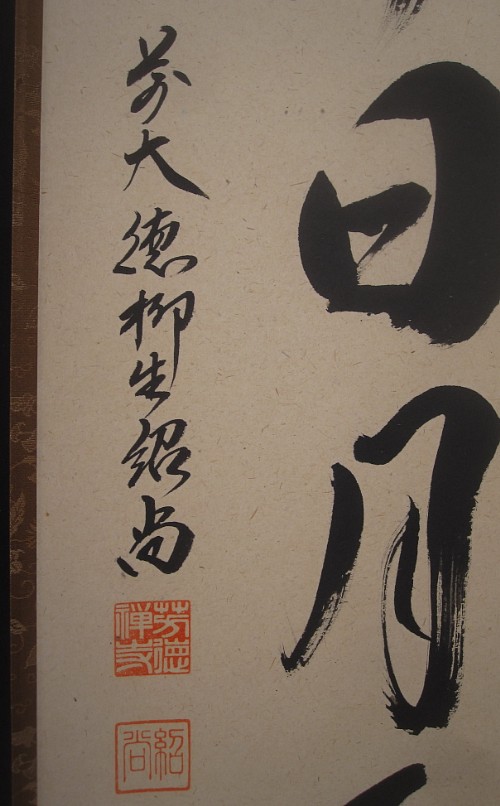 日月
前大徳柳生紹尚
芳徳禅寺
紹尚